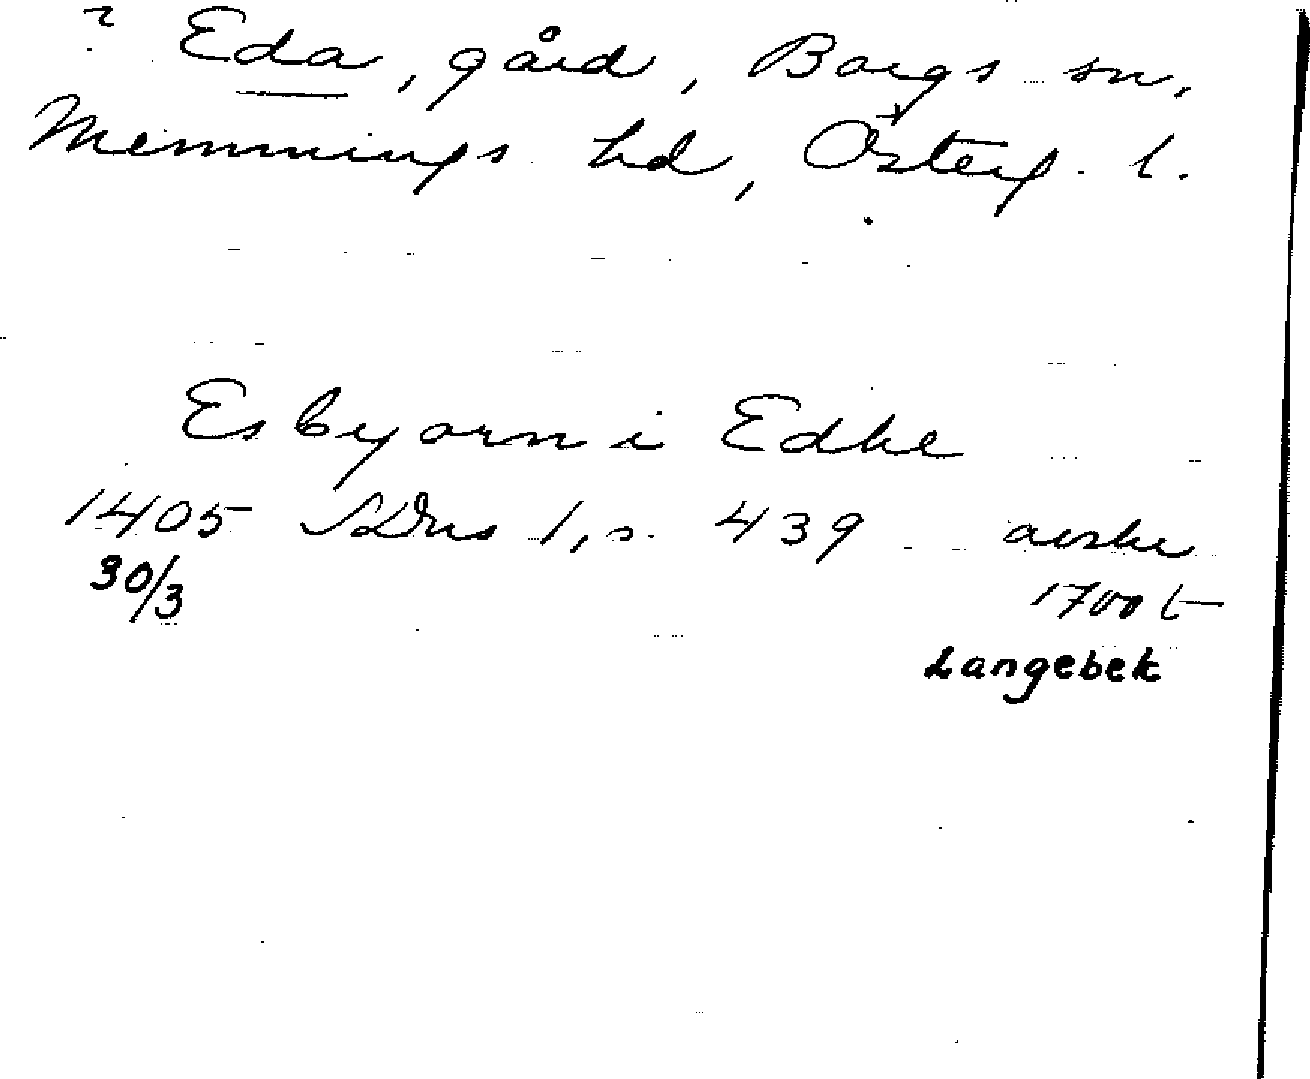 ? Eda, gård, Borgs sn,
Memmings hd, Österg. l.
Esbyorn i Edhe
1405 SDns 1, s. 439 avskr
30/3 1700 t
Langebek